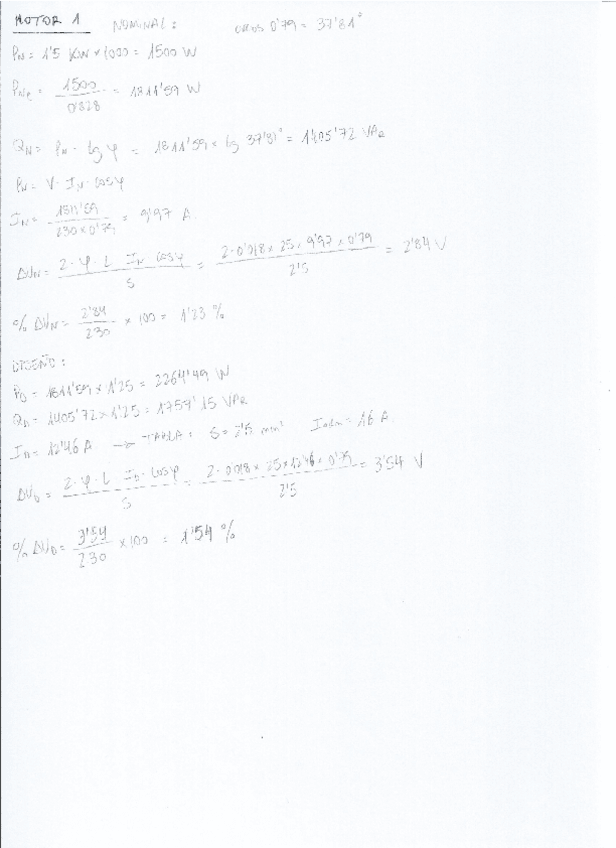 MOTOR 1 NOMINAL: arcos 0'79 = 37'81°
PN = 1'5 KW × 1000 = 1500 W
PNe = 1500 / 0'828 = 1811'59 W
QN = PN · tg φ = 1811'59 × tg 37'81° = 1405'72 VAR
PN = V · IN · cosφ
IN = 1811'59 / 230 × 0'79 = 9'97 A.
ΔUN = 2 · φ · L · IN · cosφ / S = 2 · 0'018 × 25 × 9'97 × 0'79 / 2'5 = 2'84 V
% ΔUN = 2'84 / 230 × 100 = 1'23 %
DISEÑO:
PD = 1811'59 × 1'25 = 2264'49 W
QD = 1405'72 × 1'25 = 1757'15 VAR
ID = 12'46 A → TABLA: S = 2'5 mm² Iadm = 16 A.
ΔUD = 2 · φ · L · ID · cosφ / S = 2 · 0'018 × 25 × 12'46 × 0'79 / 2'5 = 3'54 V
% ΔUD = 3'54 / 230 × 100 = 1'54 %